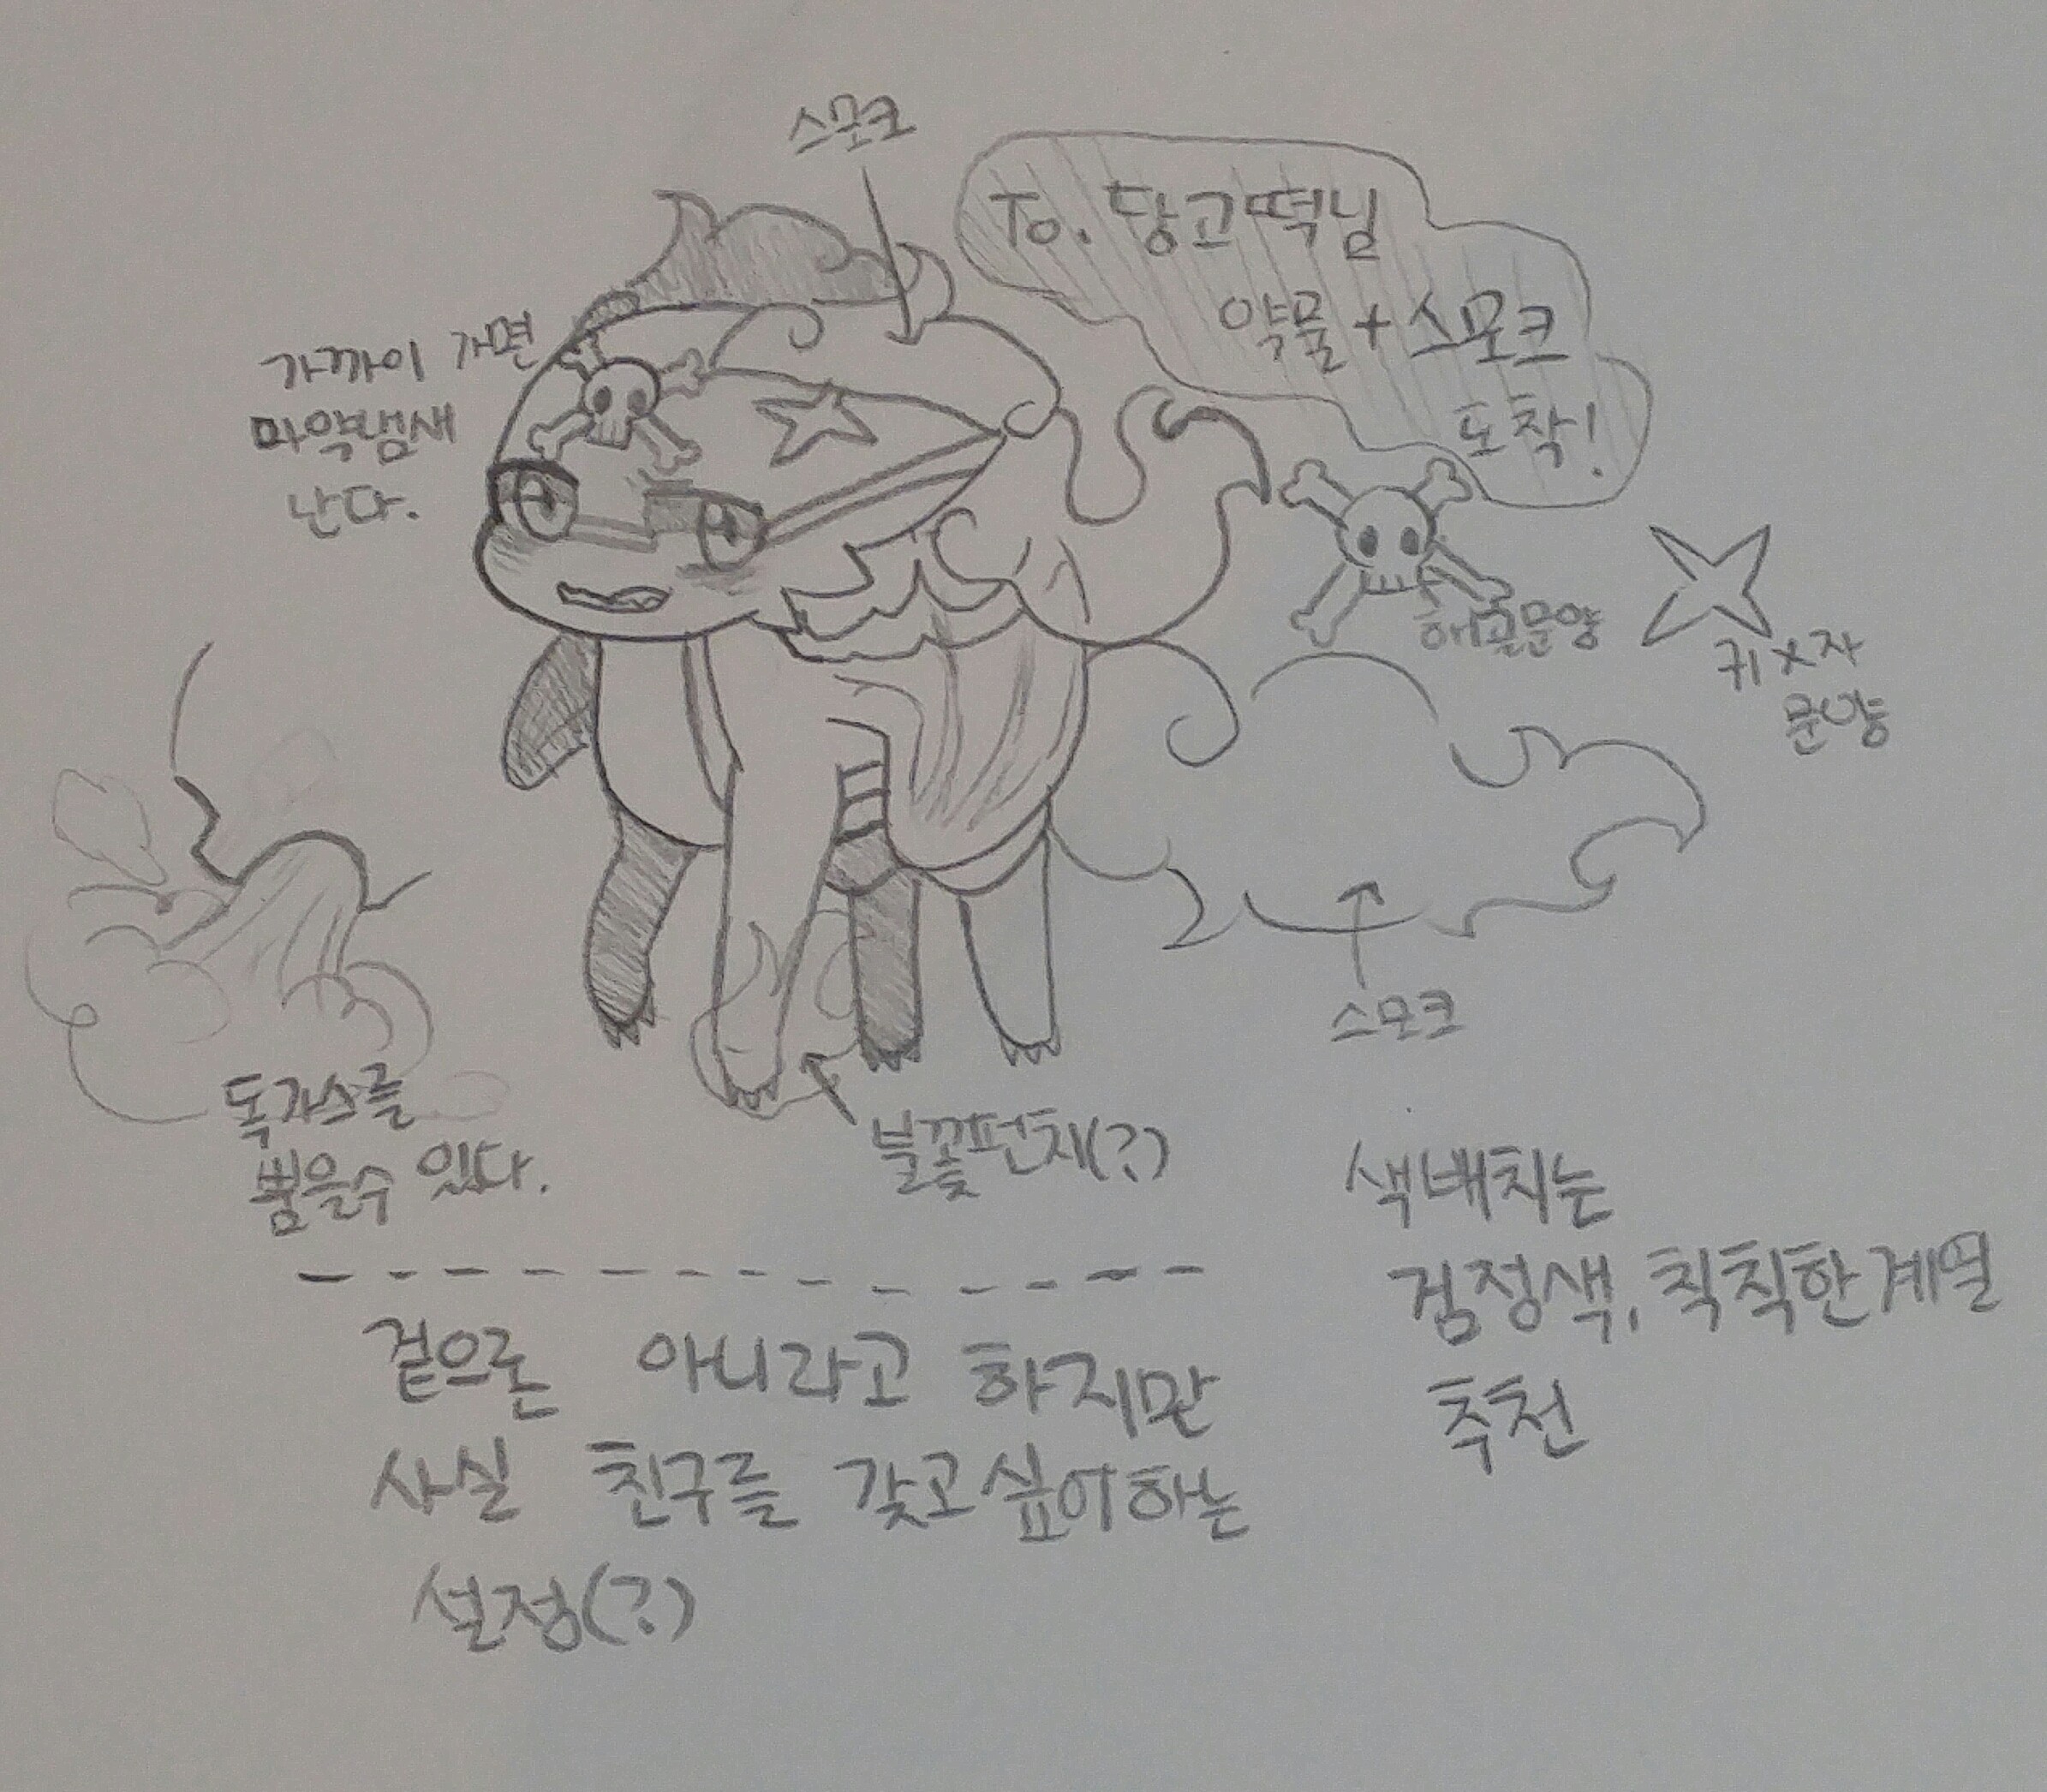 스모크
To. 당고떡님
약물 + 스모크
도착!
가까이 가면
마약냄새
난다.
해골문양
귀 X자
문양
스모크
독가스를
뿜을수 있다.
불꽃펀치(?)
색배치는
검정색, 칙칙한계열
추천
겉으론 아니라고 하지만
사실 친구를 갖고싶어하는
설정(?)